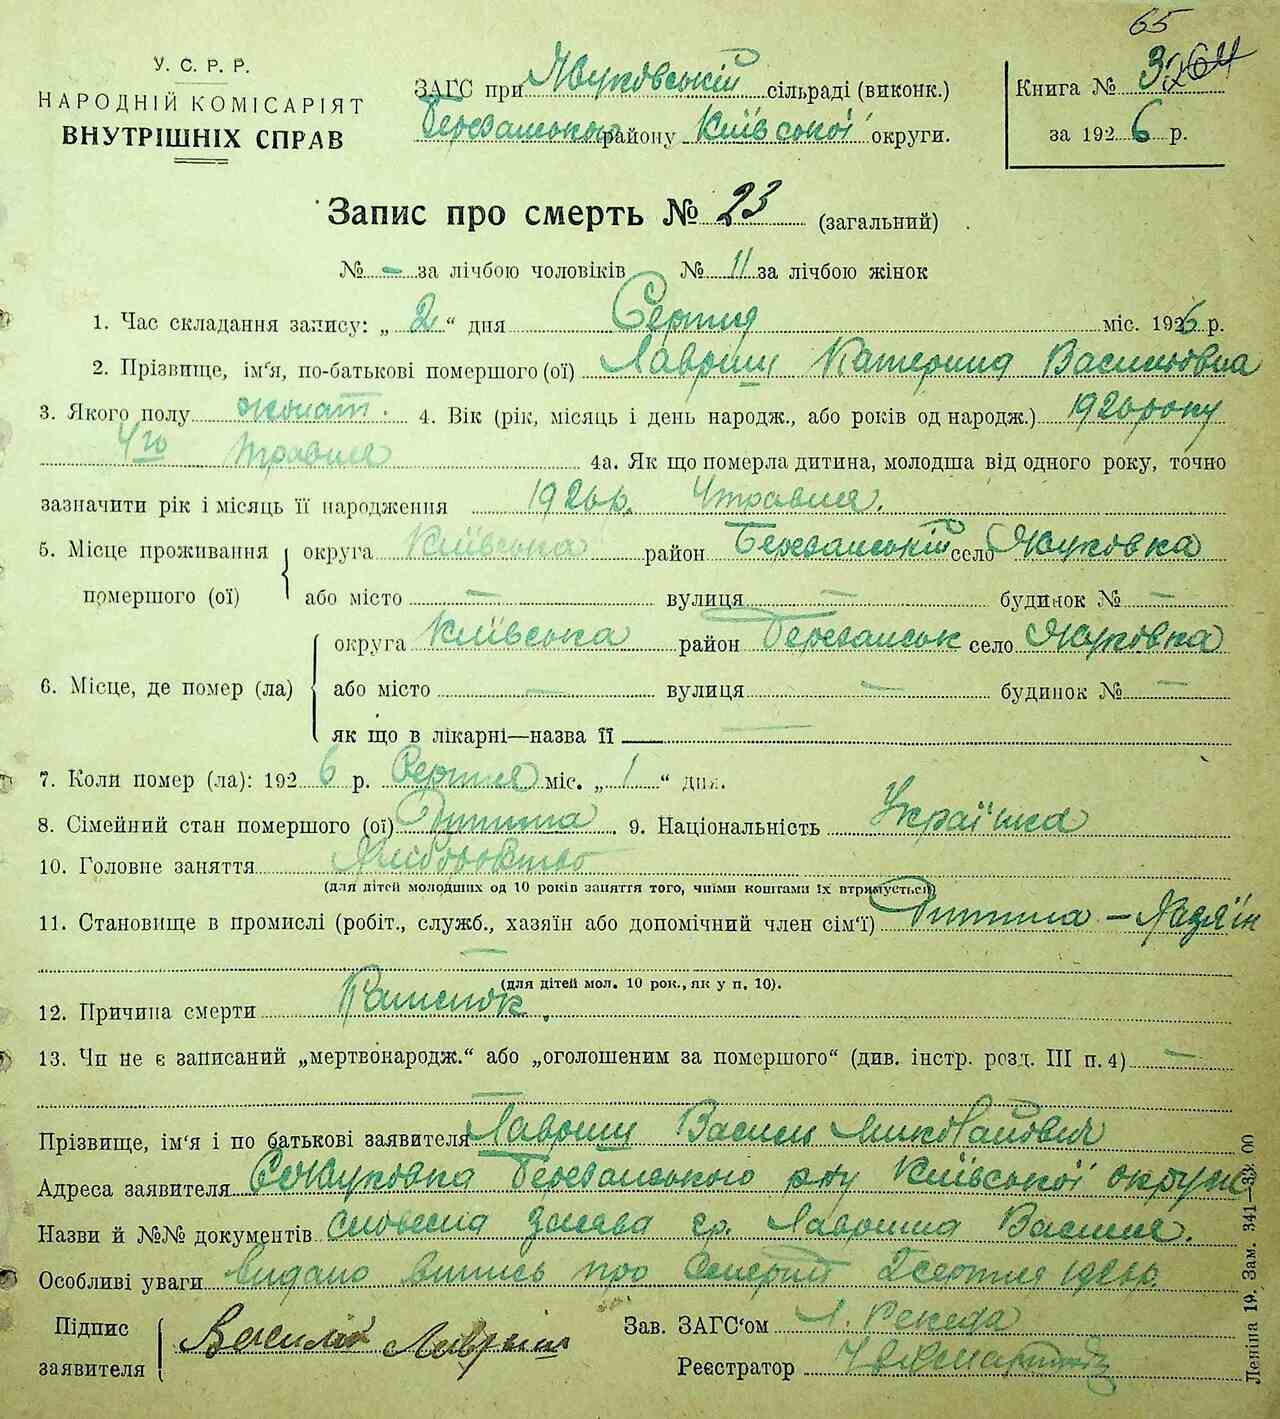 65
У. С. Р. Р.
НАРОДНІЙ КОМІСАРІЯТ
ВНУТРІШНІХ СПРАВ
ЗАГС при Жуковській сільраді (виконк.)
Березанського району Київської округи.
Книга №
за 1926 р.
Запис про смерть № 23 (загальний)
№ - за лічбою чоловіків № 11 за лічбою жінок
1. Час складання запису: „ 2 “ дня Серпня міс. 1926 р.
2. Прізвище, ім‘я, по-батькові помершого (ої) Лавриш Катерина Василівна
3. Якого полу жіноч. 4. Вік (рік, місяць і день народж., або років од народж.) 1926 року
4го травня 4а. Як що померла дитина, молодша від одного року, точно
зазначити рік і місяць її народження 1926 р. 4 травня.
5. Місце проживання помершого (ої) округа Київська район Березанській село Жуковка
або місто — вулиця — будинок № —
6. Місце, де помер (ла) округа Київська район Березанськ село Жуковка
або місто — вулиця — будинок № —
як що в лікарні—назва її —
7. Коли помер (ла): 1926 р. Серпня міс. „ 1 “ дня.
8. Сімейний стан помершого (ої) Дитина 9. Національність Українка
10. Головне заняття Хліборобство
(для дітей молодших од 10 років заняття того, чиїми коштами їх втримується)
11. Становище в промислі (робіт., служб., хазяїн або допомічний член сім‘ї) Дитина — Хазяїн
—
(для дітей мол. 10 рок., як у п. 10).
12. Причина смерти Кашлюк.
13. Чи не є записаний „мертвонародж.“ або „оголошеним за помершого“ (див. інстр. розд. III п. 4) —
—
Прізвище, ім‘я і по батькові заявителя Лавриш Василь Миколайович
Адреса заявителя С. Жуковка Березанського р-ну Київської округи
Назви й №№ документів словесна заява гр. Лавриша Василя.
Особливі уваги Видано випись про смерть 2 серпня 1926 р.
Підпис заявителя Василь Лавриш
Зав. ЗАГС‘ом
Реєстратор
Леніна 19. Зам. 341—33. 00